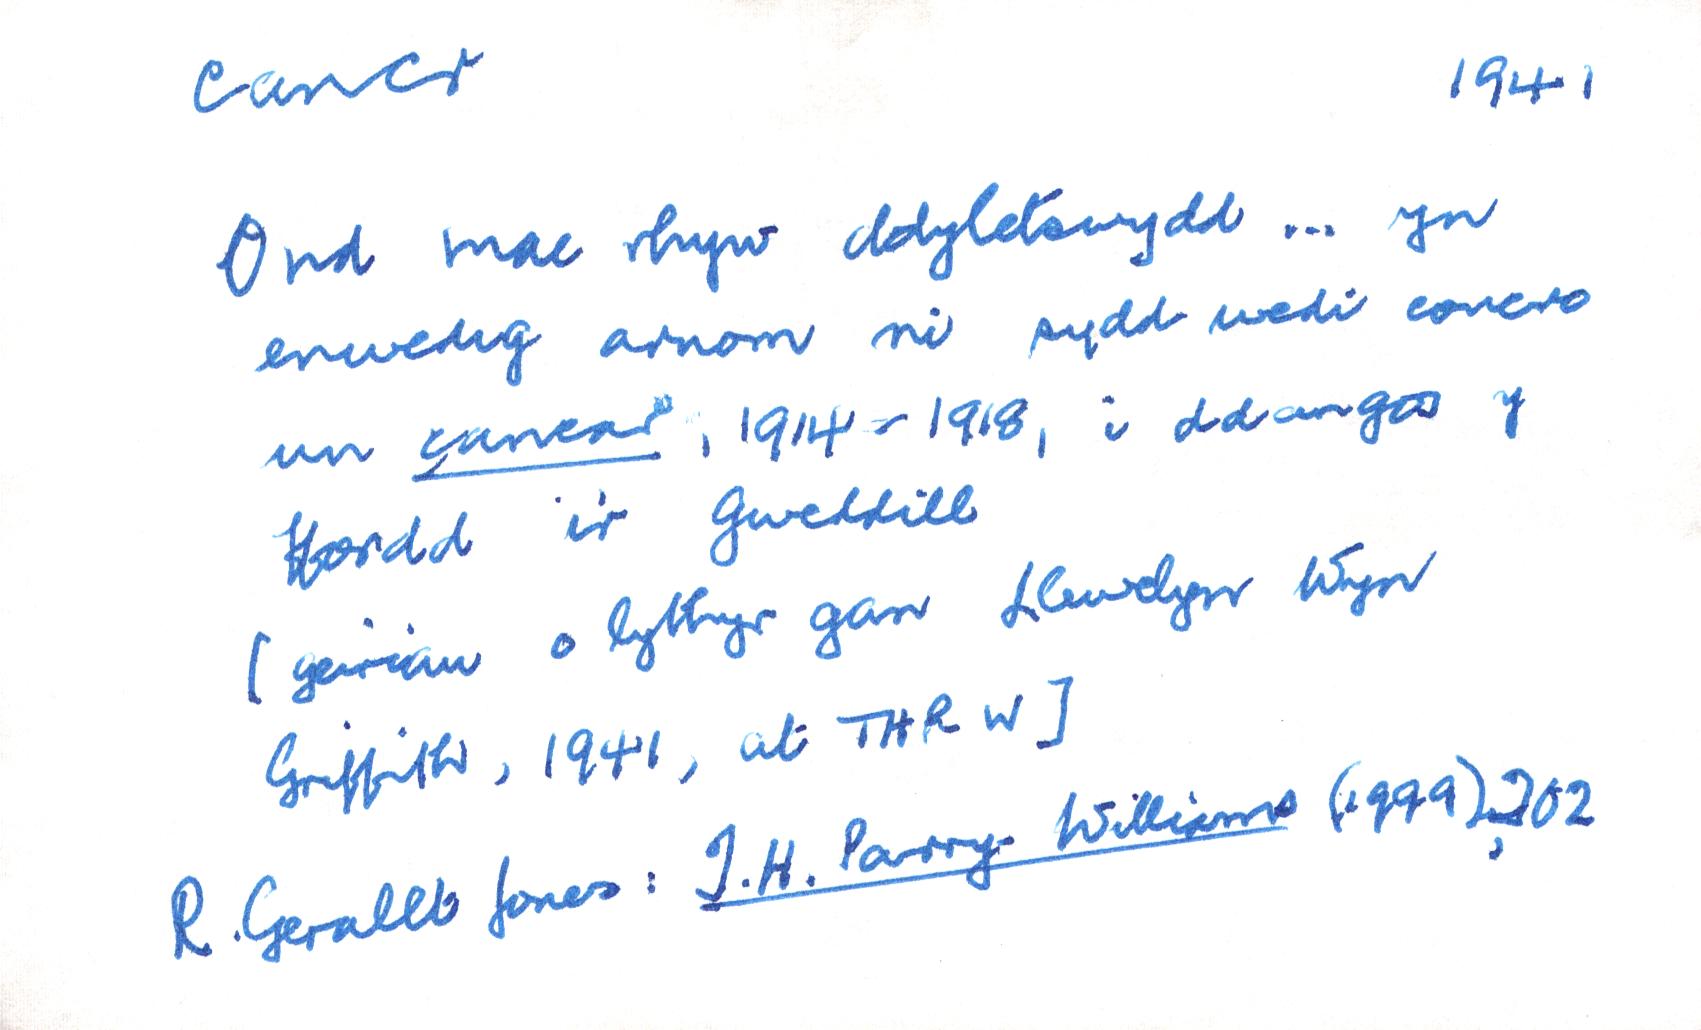 cancr 1941
Ond mae rhyw ddyletswydd ... yn
enwedig arnom ni sydd wedi concro
un cancar, 1914-1918, i ddangos y
ffordd i'r Gweddill
[geiriau o lythyr gan Llewelyn Wyn
Griffith, 1941, at THP W]
R. Gerallt Jones: T.H. Parry-Williams (1999), 202